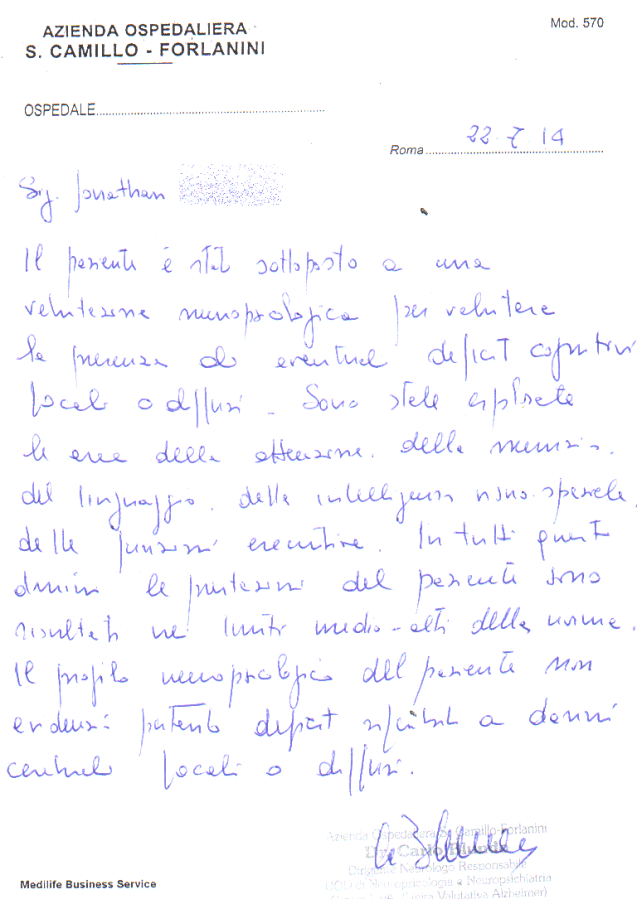 AZIENDA OSPEDALIERA
S. CAMILLO - FORLANINI
Mod. 570
OSPEDALE
Roma 22 7 14
Sig. Jonathan
Il paziente è stato sottoposto a una
valutazione neuropsicologica per valutare
la presenza di eventuali deficit cognitivi
focali o diffusi. Sono state esplorate
le aree della attenzione, della memoria,
del linguaggio, della intelligenza visuo-spaziale,
delle funzioni esecutive. In tutti questi
domini le prestazioni del paziente sono
risultati nei limiti medio-alti della norma.
Il profilo neuropsicologico del paziente non
evidenzia pertanto deficit a danni
cerebrali focali o diffusi.
Azienda Ospedaliera S. Camillo-Forlanini
Dr. Carlo
Dirigente Neurologo Responsabile
UOD di Neuropsicologia e Neuropsichiatria
Valutativa Alzheimer)
Medilife Business Service